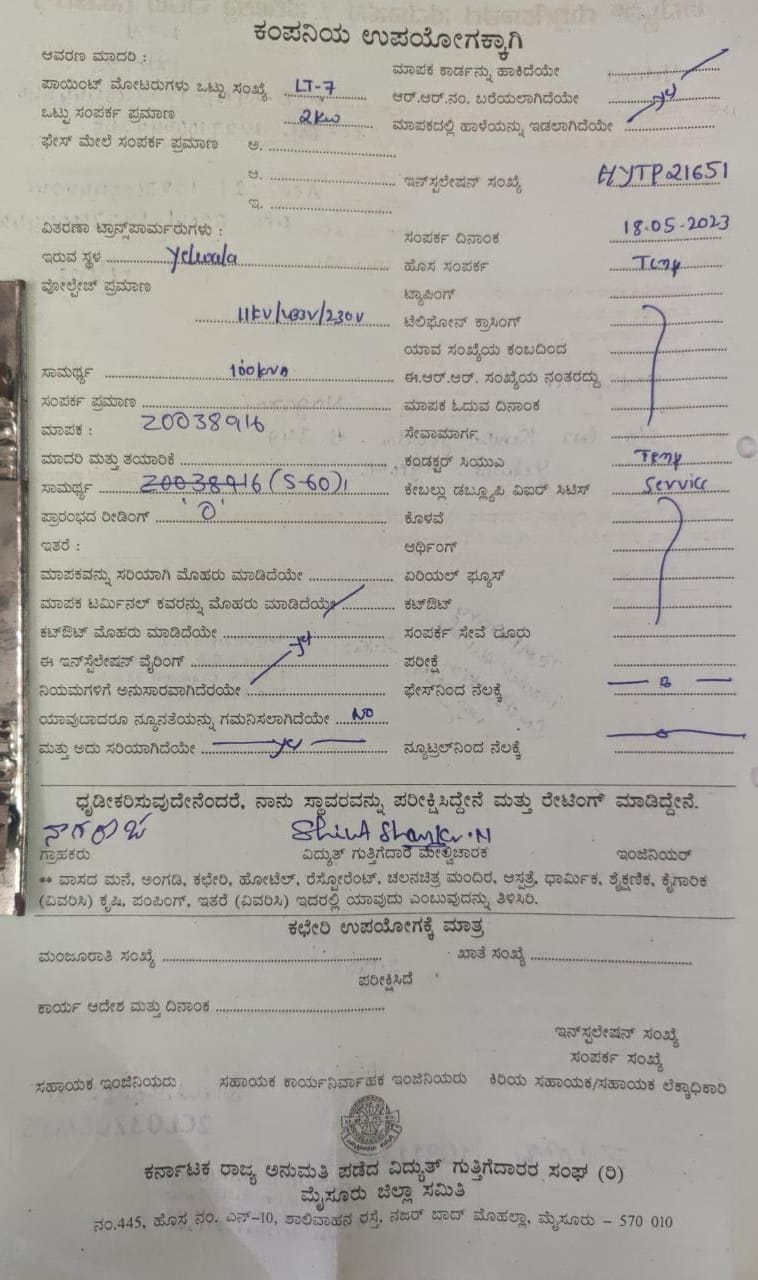 ಕಂಪನಿಯ ಉಪಯೋಗಕ್ಕಾಗಿ
ಆವರಣ ಮಾದರಿ :
ಮಾಪಕ ಕಾರ್ಡನ್ನು ಹಾಕಿದೆಯೇ
ಪಾಯಿಂಟ್ ಮೋಟರುಗಳು ಒಟ್ಟು ಸಂಖ್ಯೆ LT-7
ಆರ್.ಆರ್.ನಂ. ಬರೆಯಲಾಗಿದೆಯೇ
ಒಟ್ಟು ಸಂಪರ್ಕ ಪ್ರಮಾಣ 2kw
ಮಾಪಕದಲ್ಲಿ ಹಾಳೆಯನ್ನು ಇಡಲಾಗಿದೆಯೇ
ಫೇಸ್ ಮೇಲೆ ಸಂಪರ್ಕ ಪ್ರಮಾಣ ಅ.
ಆ.
ಇನ್‌ಸ್ಟಲೇಷನ್ ಸಂಖ್ಯೆ HYTP21651
ಇ.
ವಿತರಣಾ ಟ್ರಾನ್ಸ್‌ಪಾರ್ಮರುಗಳು :
ಸಂಪರ್ಕ ದಿನಾಂಕ 18.05-2023
ಇರುವ ಸ್ಥಳ Yelwala
ಹೊಸ ಸಂಪರ್ಕ Temp
ವೋಲ್ಟೇಜ್ ಪ್ರಮಾಣ
ಟ್ಯಾಪಿಂಗ್
11kV/433V/230V
ಟೆಲಿಫೋನ್ ಕ್ರಾಸಿಂಗ್
ಯಾವ ಸಂಖ್ಯೆಯ ಕಂಬದಿಂದ
ಸಾಮರ್ಥ್ಯ 100kva
ಈ.ಆರ್.ಆರ್. ಸಂಖ್ಯೆಯ ನಂತರದ್ದು
ಸಂಪರ್ಕ ಪ್ರಮಾಣ
ಮಾಪಕ ಓದುವ ದಿನಾಂಕ
ಮಾಪಕ : Z0038916
ಸೇವಾಮಾರ್ಗ
ಮಾದರಿ ಮತ್ತು ತಯಾರಿಕೆ
ಕಂಡಕ್ಟರ್ ಸಿಯುಎ Temp
ಸಾಮರ್ಥ್ಯ Z0038916 (5-60)
ಕೇಬಲ್ಲು ಡಬ್ಲ್ಯೂಪಿ ವಿಐರ್ ಸಿಟಿಸ್ Service
ಪ್ರಾರಂಭದ ರೀಡಿಂಗ್ '0'
ಕೊಳವೆ
ಇತರೆ :
ಆರ್ಥಿಂಗ್
ಮಾಪಕವನ್ನು ಸರಿಯಾಗಿ ಮೊಹರು ಮಾಡಿದೆಯೇ
ಏರಿಯಲ್ ಫ್ಯೂಸ್
ಮಾಪಕ ಟರ್ಮಿನಲ್ ಕವರನ್ನು ಮೊಹರು ಮಾಡಿದೆಯೇ
ಕಟ್‌ಔಟ್
ಕಟ್‌ಔಟ್ ಮೊಹರು ಮಾಡಿದೆಯೇ
ಸಂಪರ್ಕ ಸೇವೆ ದೂರು
ಈ ಇನ್‌ಸ್ಟೆಲೇಷನ್ ವೈರಿಂಗ್
ಪರೀಕ್ಷೆ
ನಿಯಮಗಳಿಗೆ ಅನುಸಾರವಾಗಿದೆರಯೇ
ಫೇಸ್‌ನಿಂದ ನೆಲಕ್ಕೆ
ಯಾವುದಾದರೂ ನ್ಯೂನತೆಯನ್ನು ಗಮನಿಸಲಾಗಿದೆಯೇ NO
ಮತ್ತು ಅದು ಸರಿಯಾಗಿದೆಯೇ
ನ್ಯೂಟ್ರಲ್‌ನಿಂದ ನೆಲಕ್ಕೆ
ಧೃಡೀಕರಿಸುವುದೇನೆಂದರೆ, ನಾನು ಸ್ಥಾವರವನ್ನು ಪರೀಕ್ಷಿಸಿದ್ದೇನೆ ಮತ್ತು ರೇಟಿಂಗ್ ಮಾಡಿದ್ದೇನೆ.
ನಾಗರಾಜ Shiva Shankar.N
ಗ್ರಾಹಕರು ವಿದ್ಯುತ್ ಗುತ್ತಿಗೆದಾರ ಮೇಲ್ವಿಚಾರಕ ಇಂಜಿನಿಯರ್
** ವಾಸದ ಮನೆ, ಅಂಗಡಿ, ಕಛೇರಿ, ಹೋಟೆಲ್, ರೆಸ್ಟೋರೆಂಟ್, ಚಲನಚಿತ್ರ ಮಂದಿರ, ಆಸ್ಪತ್ರೆ, ಧಾರ್ಮಿಕ, ಶೈಕ್ಷಣಿಕ, ಕೈಗಾರಿಕ
(ವಿವರಿಸಿ) ಕೃಷಿ, ಪಂಪಿಂಗ್, ಇತರೆ (ವಿವರಿಸಿ) ಇದರಲ್ಲಿ ಯಾವುದು ಎಂಬುವುದನ್ನು ತಿಳಿಸಿರಿ.
ಕಛೇರಿ ಉಪಯೋಗಕ್ಕೆ ಮಾತ್ರ
ಮಂಜೂರಾತಿ ಸಂಖ್ಯೆ ಖಾತೆ ಸಂಖ್ಯೆ
ಪರೀಕ್ಷಿಸಿದೆ
ಕಾರ್ಯ ಆದೇಶ ಮತ್ತು ದಿನಾಂಕ
ಇನ್‌ಸ್ಟಲೇಷನ್ ಸಂಖ್ಯೆ
ಸಂಪರ್ಕ ಸಂಖ್ಯೆ
ಸಹಾಯಕ ಇಂಜಿನಿಯರು ಸಹಾಯಕ ಕಾರ್ಯನಿರ್ವಾಹಕ ಇಂಜಿನಿಯರು ಕಿರಿಯ ಸಹಾಯಕ/ಸಹಾಯಕ ಲೆಕ್ಕಾಧಿಕಾರಿ
ಕರ್ನಾಟಕ ರಾಜ್ಯ ಅನುಮತಿ ಪಡೆದ ವಿದ್ಯುತ್ ಗುತ್ತಿಗೆದಾರರ ಸಂಘ (ರಿ)
ಮೈಸೂರು ಜಿಲ್ಲಾ ಸಮಿತಿ
ನಂ.445, ಹೊಸ ನಂ. ಎನ್-10, ಶಾಲಿವಾಹನ ರಸ್ತೆ, ನಜರ್ ಬಾದ್ ಮೊಹಲ್ಲಾ, ಮೈಸೂರು - 570 010